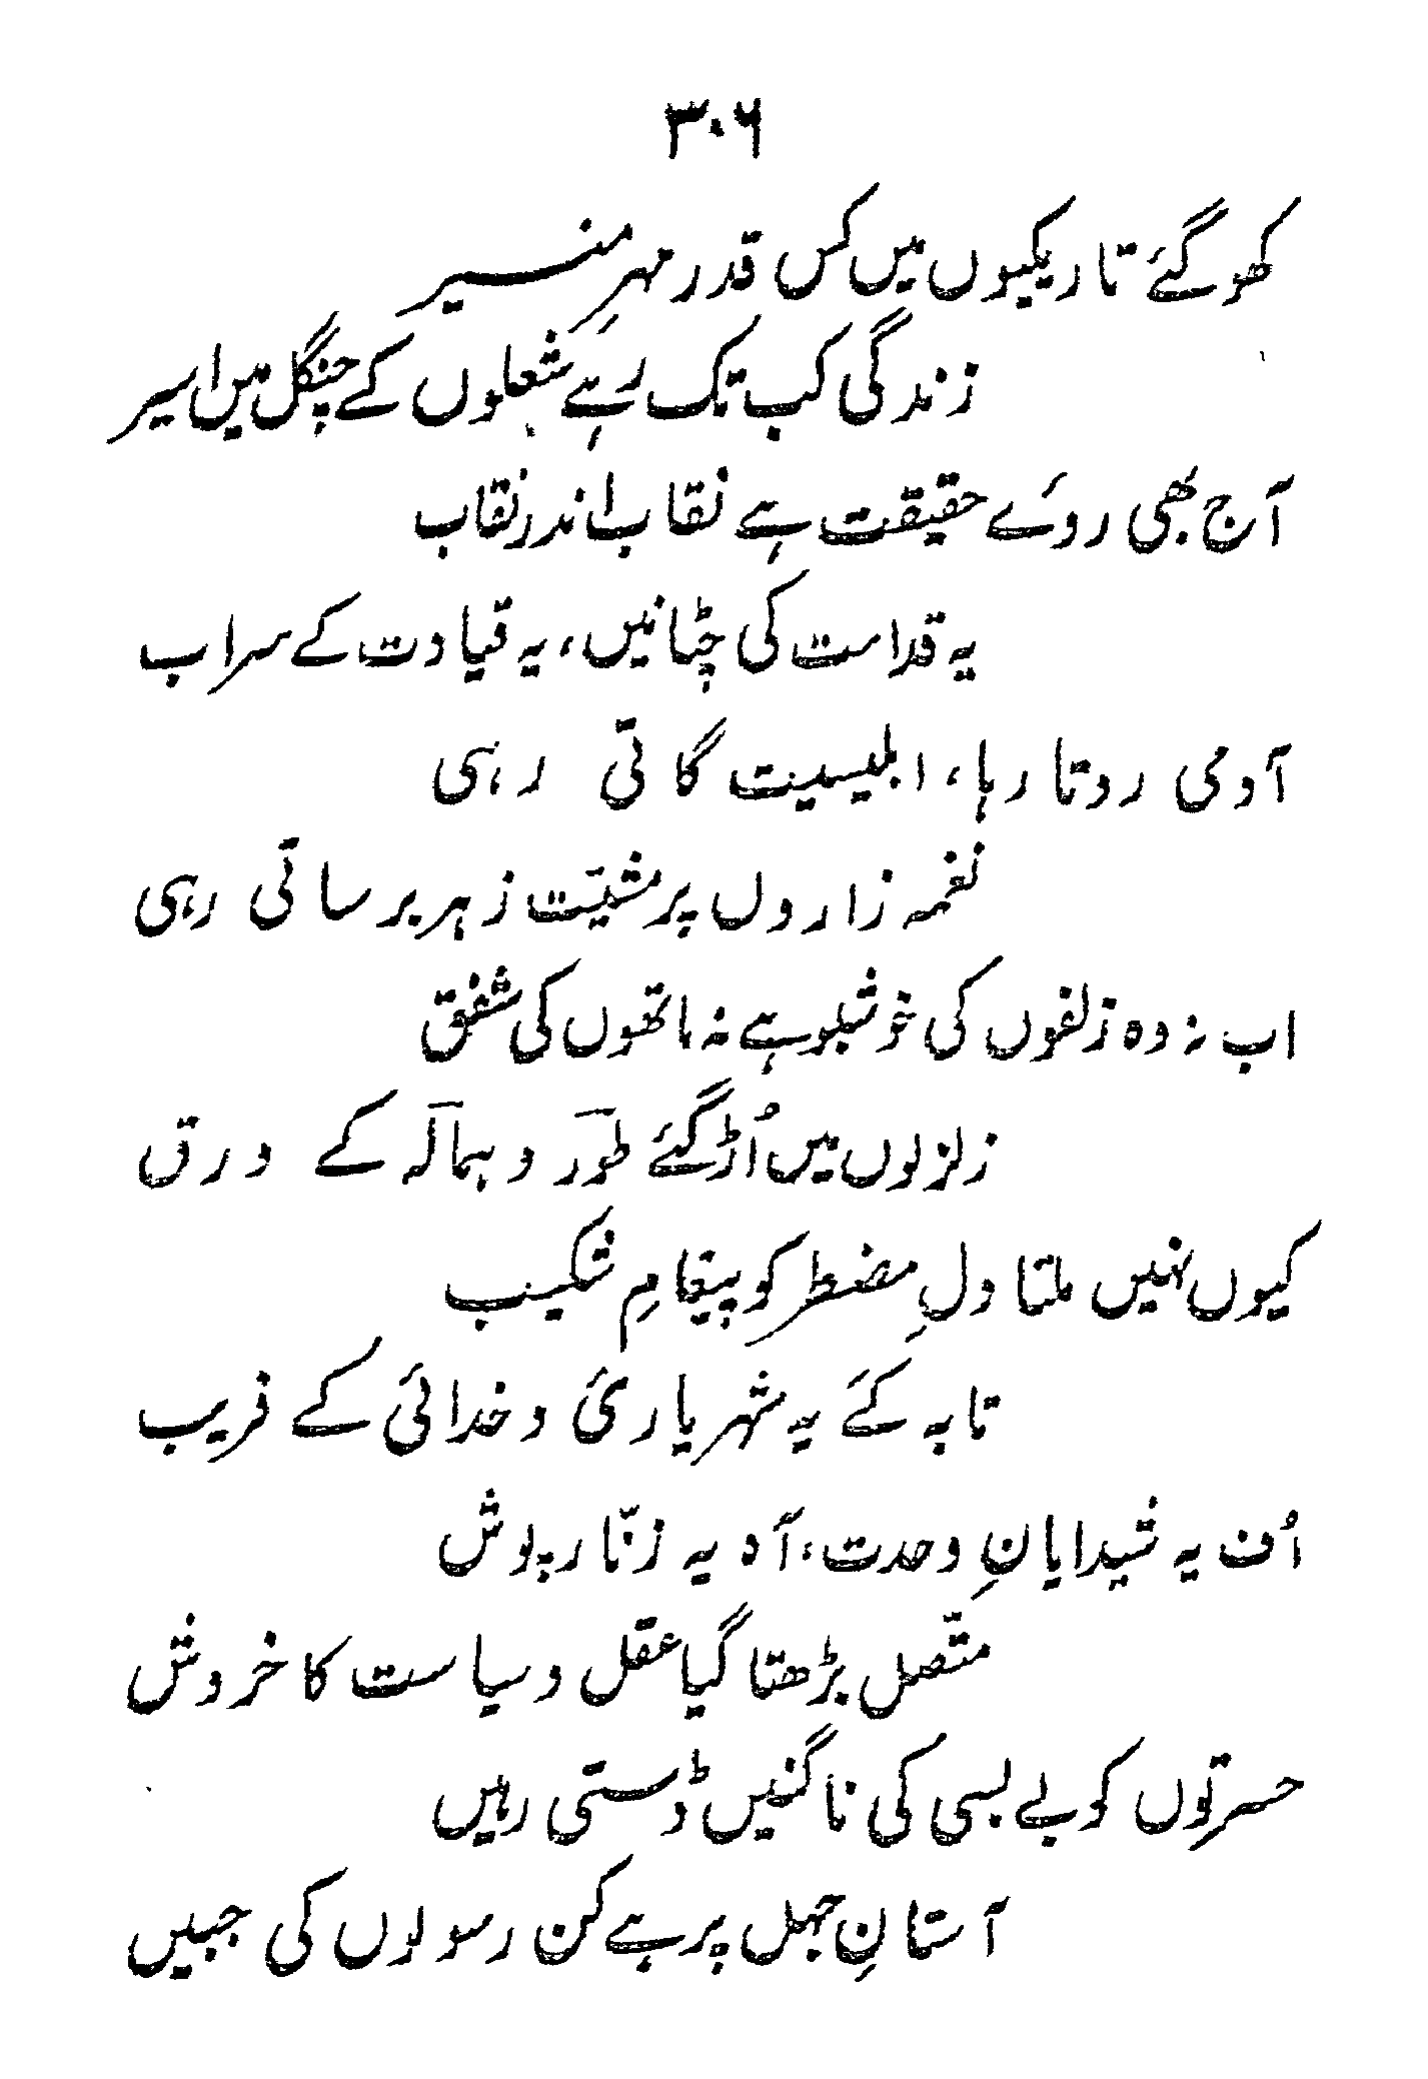 ۳۰۶
کھو گئے تاریکیوں میں کس قدر مہرِ منیر
زندگی کب تک رہے شعلوں کے چنگل میں اسیر
آج بھی روئے حقیقت ہے نقاب اندر نقاب
یہ قدامت کی چٹانیں، یہ قیادت کے سراب
آدمی روتا رہا، ابلیسیت گاتی رہی
نغمہ زاروں پر مشیّت زہر برساتی رہی
اب نہ وہ زلفوں کی خوشبو ہے نہ ماتھوں کی شفق
زلزلوں میں اُڑ گئے طور و ہمالہ کے ورق
کیوں نہیں ملتا دلِ مضطر کو پیغامِ شکیب
تا بہ کے یہ شہریاریٔ و خدائی کے فریب
اُف یہ شیدایانِ وحدت، آہ یہ زنّار پوش
متّصل بڑھتا گیا عقل و سیاست کا خروش
حسرتوں کو بے بسی کی ناگنیں ڈستی رہیں
آستانِ جہل پر ہے کن رسولوں کی جبیں